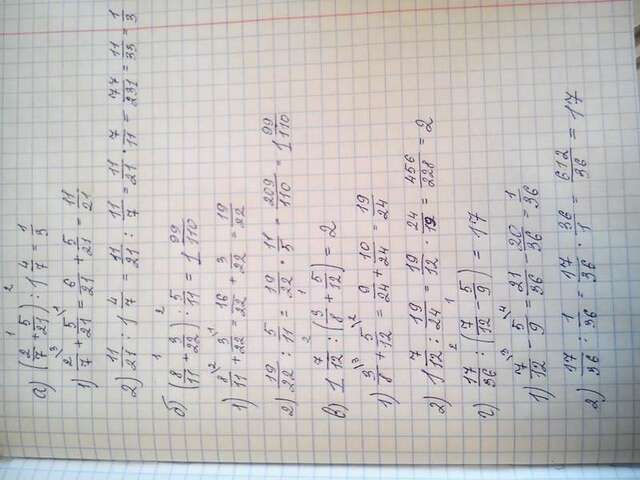 а) (2/7 + 5/21) : 1 4/7 = 1/3
1) 2/7 + 5/21 = 6/21 + 5/21 = 11/21
2) 11/21 : 1 4/7 = 11/21 : 11/7 = 11/21 · 7/11 = 77/231 = 11/33 = 1/3
б) (8/11 + 3/22) : 5/11 = 1 99/110
1) 8/11 + 3/22 = 16/22 + 3/22 = 19/22
2) 19/22 : 5/11 = 19/22 · 11/5 = 209/110 = 1 99/110
в) 1 7/12 : (3/8 + 5/12) = 2
1) 3/8 + 5/12 = 9/24 + 10/24 = 19/24
2) 1 7/12 : 19/24 = 19/12 · 24/19 = 456/228 = 2
г) 17/36 : (7/12 - 5/9) = 17
1) 7/12 - 5/9 = 21/36 - 20/36 = 1/36
2) 17/36 : 1/36 = 17/36 · 36/1 = 612/36 = 17